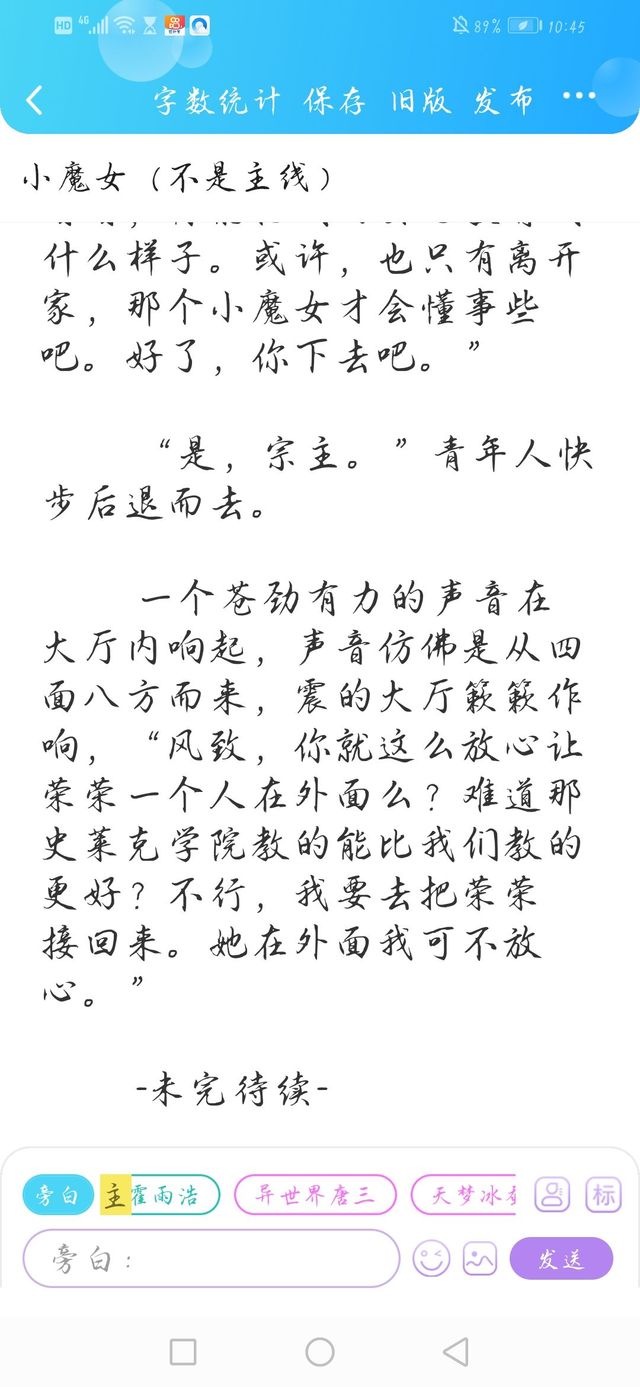 HD 4G 89% 10:45
字数统计 保存 旧版 发布 ...
小魔女（不是主线）
什么样子。或许，也只有离开
家，那个小魔女才会懂事些
吧。好了，你下去吧。”
“是，宗主。”青年人快
步后退而去。
一个苍劲有力的声音在
大厅内响起，声音仿佛是从四
面八方而来，震的大厅簌簌作
响，“风致，你就这么放心让
荣荣一个人在外面么？难道那
史莱克学院教的能比我们教的
更好？不行，我要去把荣荣
接回来。她在外面我可不放
心。”
-未完待续-
旁白 主 霍雨浩 异世界唐三 天梦冰
标
旁白： 发送